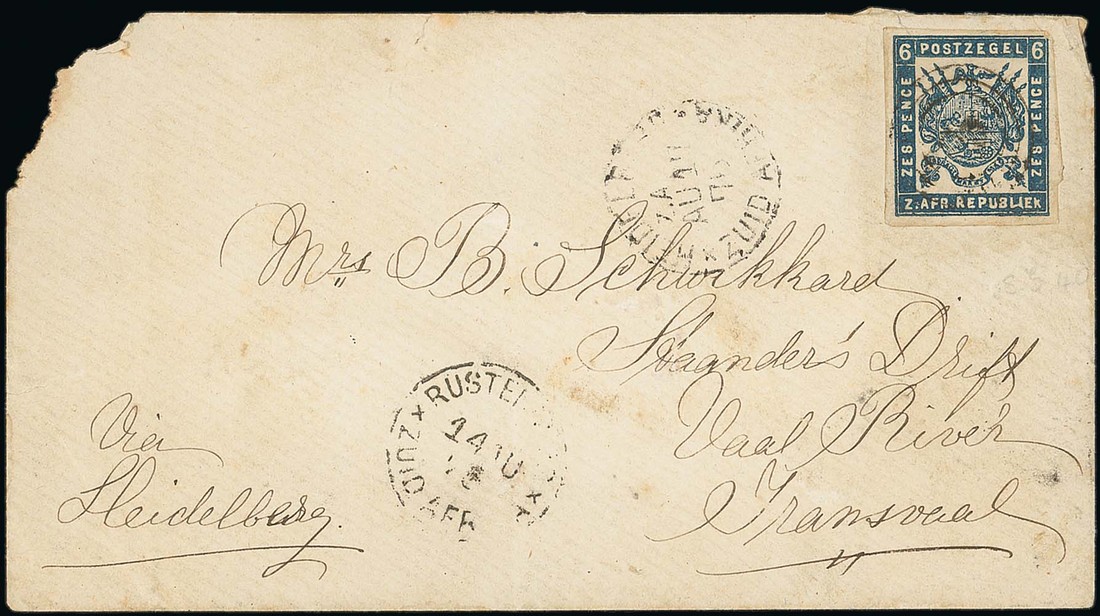 6 POSTZEGEL 6
ZES PENCE
ZES PENCE
Z. AFR. REPUBLIEK
ZUID
Mrs. B. Schwikkard
Staander's Drift
Vaal River
Transvaal
Via
Heidelberg.
RUSTE
ZUID AFR